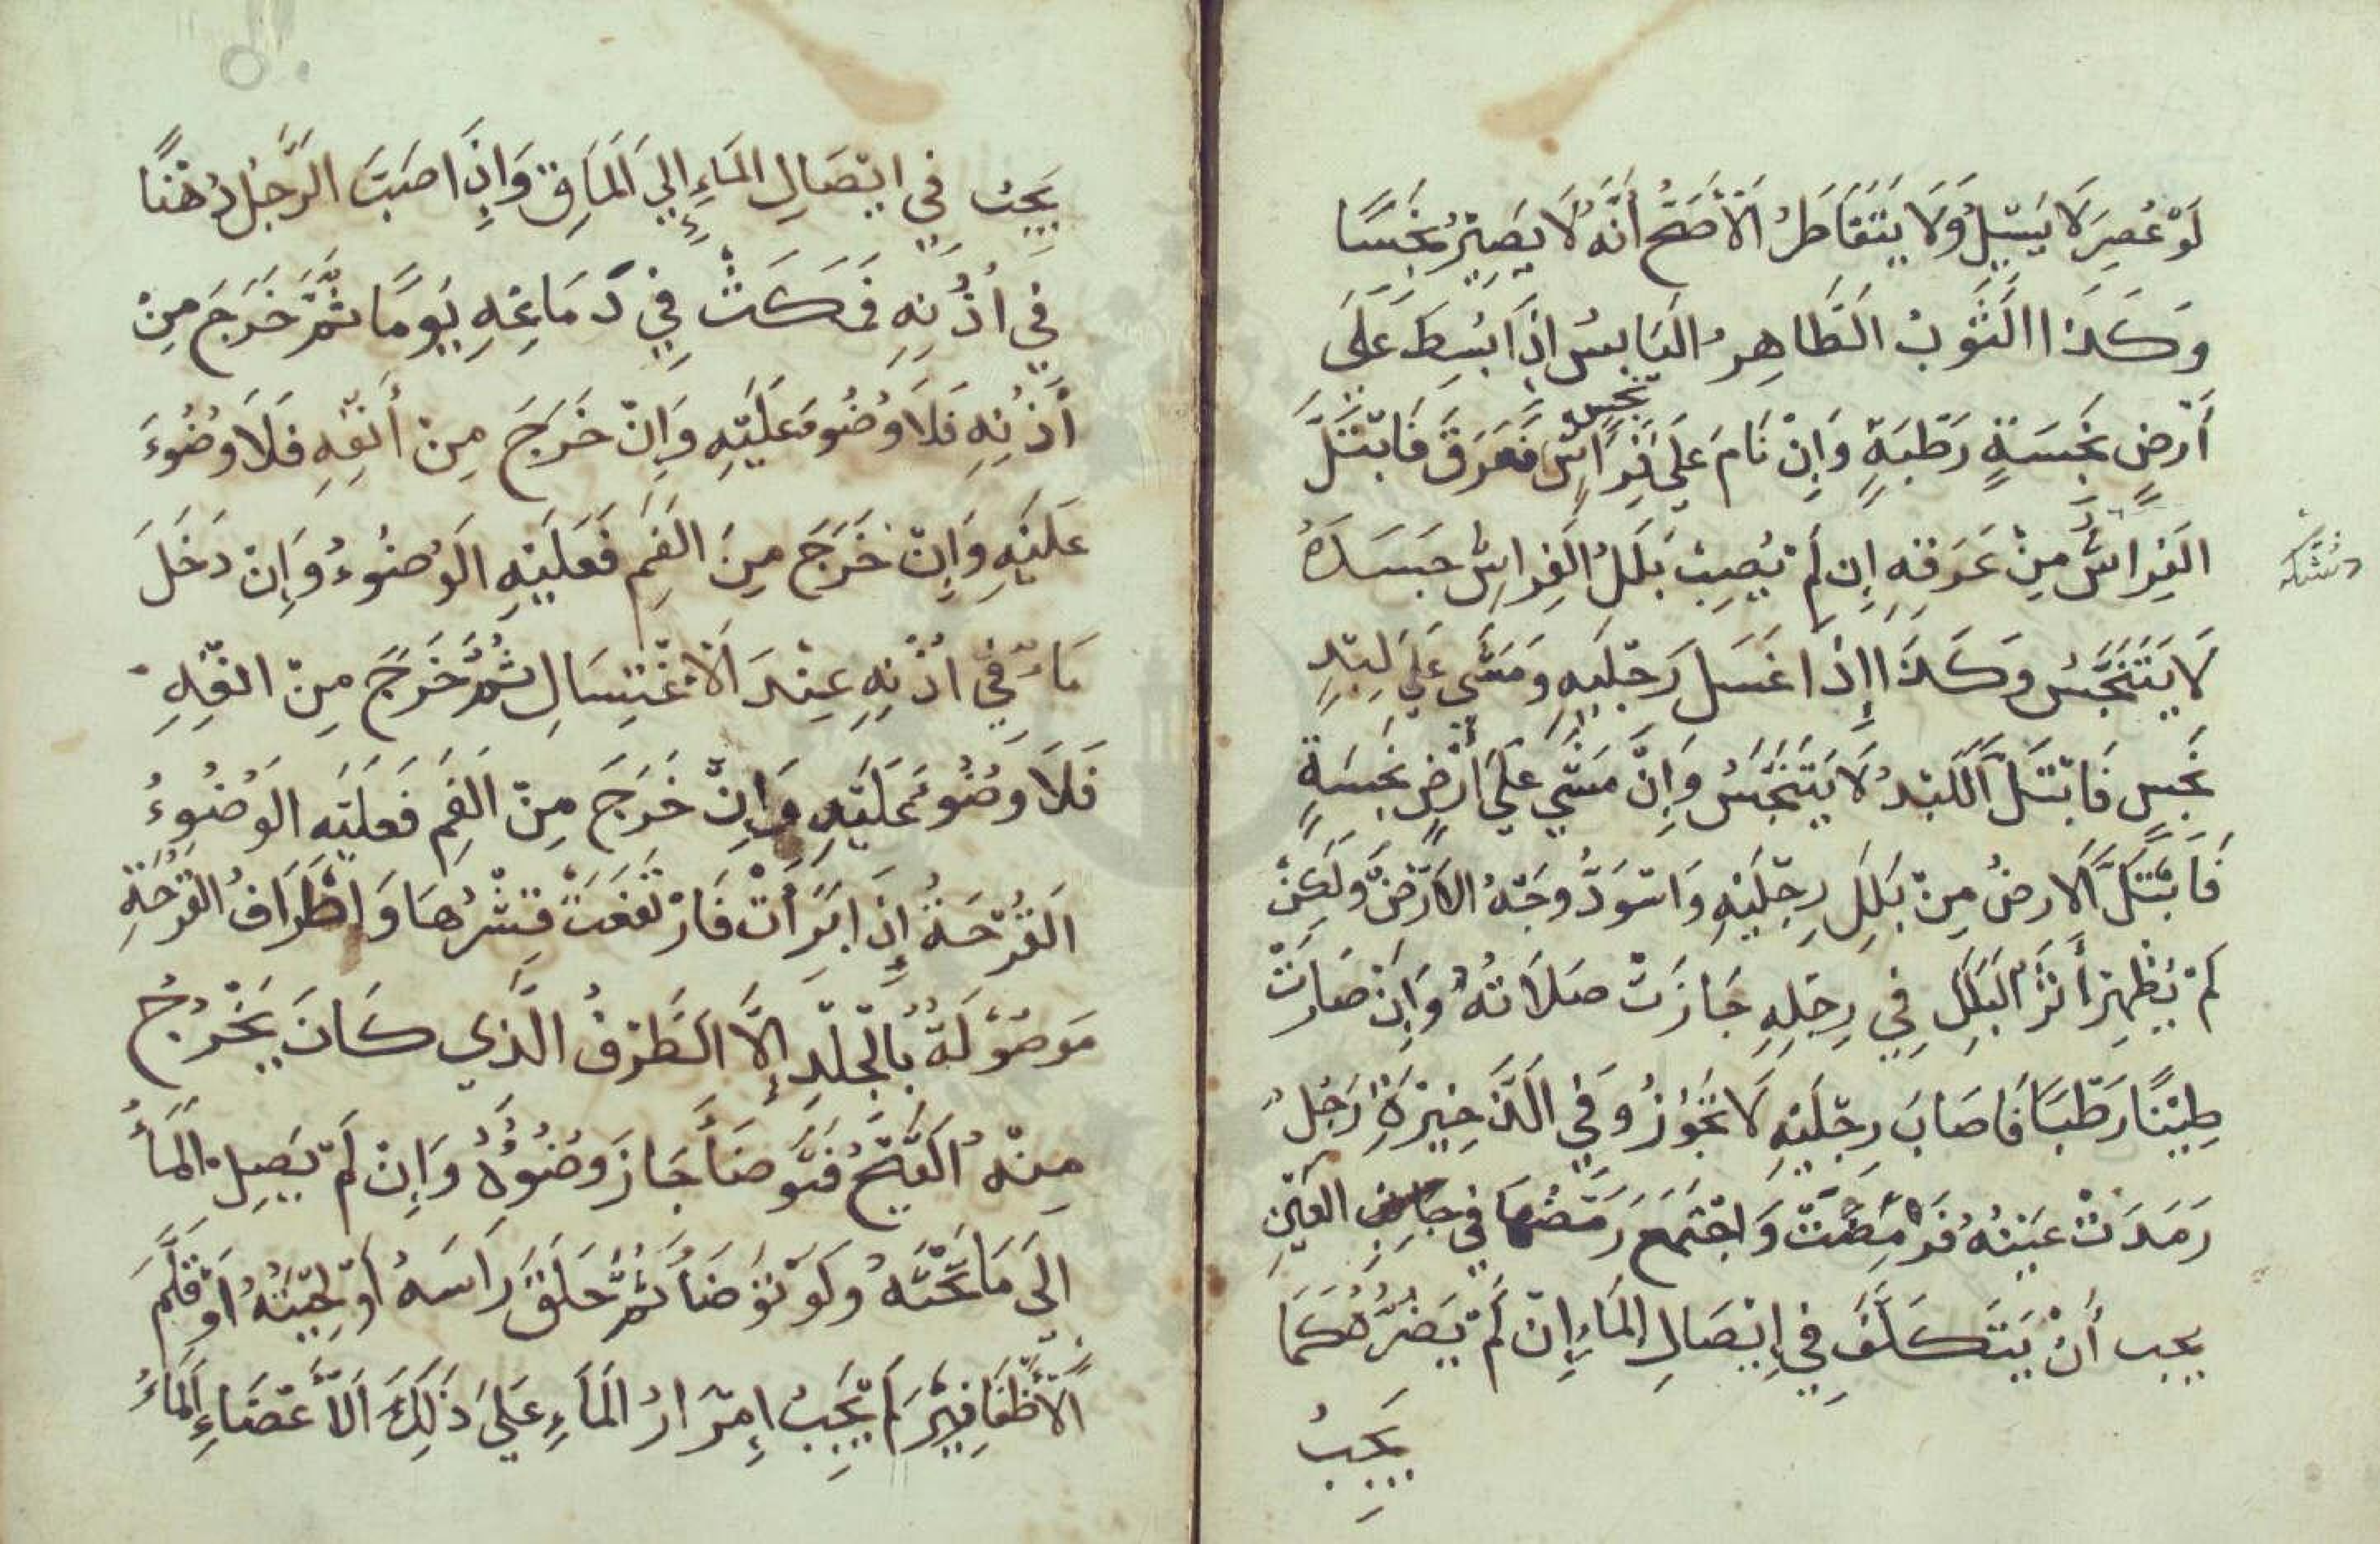 لَوْ عُصِرَ لَا يَسِيْلُ وَلَا يَتَقَاطَرُ الْأَصَحُّ أَنَّهُ لَا يَصِيْرُ نَجِسًا
وَكَذَا الثَّوْبُ الطَّاهِرُ الْيَابِسُ اِذَا بُسِطَ عَلَى
أَرْضٍ نَجِسَةٍ رَطْبَةٍ وَإِنْ نَامَ عَلَى فِرَاشٍ نَجِسٍ فَعَرَقَ فَابْتَلَّ
الْفِرَاشُ مِنْ عَرَقِهِ إِنْ لَمْ يُصِبْ بَلَلُ الْفِرَاشِ جَسَدَهُ
لَا يَتَنَجَّسُ وَكَذَا إِذَا غَسَلَ رِجْلَيْهِ وَمَشَى عَلَى لِبْدٍ
نَجِسٍ فَابْتَلَّ اللِّبْدُ لَا يَتَنَجَّسُ وَإِنْ مَشَى عَلَى أَرْضٍ نَجِسَةٍ
فَابْتَلَّ الْأَرْضُ مِنْ بَلَلِ رِجْلَيْهِ وَاسْوَدَّ وَجْهُ الْأَرْضِ وَلَكِنْ
لَمْ يَظْهَرْ أَثَرُ الْبَلَلِ فِي رِجْلِهِ جَازَتْ صَلَاتُهُ وَإِنْ صَارَتْ
طِيْنًا رَطْبًا فَاصَابَ رِجْلَيْهِ لَا يَجُوْزُ وَفِي الذَّخِيْرَةِ رَجُلٌ
رَمَدَتْ عَيْنُهُ فَرَمِصَتْ وَاجْتَمَعَ رَمَصُهَا فِي جَانِبِ الْعَيْنِ
يجب أَنْ يَتَكَلَّفَ فِي إِيْصَالِ الْمَاءِ إِنْ لَمْ يَضُرَّهُ كَمَا
يَجِبُ
يَجِبُ فِي اِيْصَالِ الْمَاءِ إِلَى الْمَاقِ وَإِذَا صَبَّ الرَّجُلُ دُهْنًا
فِي اُذُنِهِ فَمَكَثَ فِي دِمَاغِهِ يَوْمًا ثُمَّ خَرَجَ مِنْ
أُذُنِهِ فَلَا وُضُوءَ عَلَيْهِ وَإِنْ خَرَجَ مِنْ أَنْفِهِ فَلَا وُضُوْءَ
عَلَيْهِ وَإِنْ خَرَجَ مِنَ الْفَمِ فَعَلَيْهِ الْوُضُوْءُ وَإِنْ دَخَلَ
مَاءٌ فِي اُذُنِهِ عِنْدَ الْاِغْتِسَالِ ثُمَّ خَرَجَ مِنْ انفِهِ
فَلَا وُضُوءَ عَلَيْهِ وَإِنْ خَرَجَ مِنَ الْفَمِ فَعَلَيْهِ الْوُضُوْءُ
الْقُرْحَةُ إِذَا بَرَأَتْ فَارْتَفَعَتْ قِشْرُهَا وَاطْرَافُ الْقُرْحَةِ
مَوْصُوْلَةٌ بِالْجِلْدِ إِلَّا الطَّرْفُ الَّذِي كَانَ يَخْرُجُ
مِنْهُ الْقَيْحُ فَتَوَضَّأَ جَازَ وُضُوْؤُهُ وَإِنْ لَمْ يَصِلِ الْمَاءُ
إِلَى مَا تَحْتَهُ وَلَوْ تَوَضَّأَ ثُمَّ حَلَقَ رَاسَهُ اَوْ لِحْيَتَهُ اَوْ قَلَّمَ
الْأَظَافِيْرَ لَمْ يَجِبْ إِمْرَارُ الْمَاءِ عَلَى ذَلِكَ الْأَعْضَاءِ الْمَاءُ